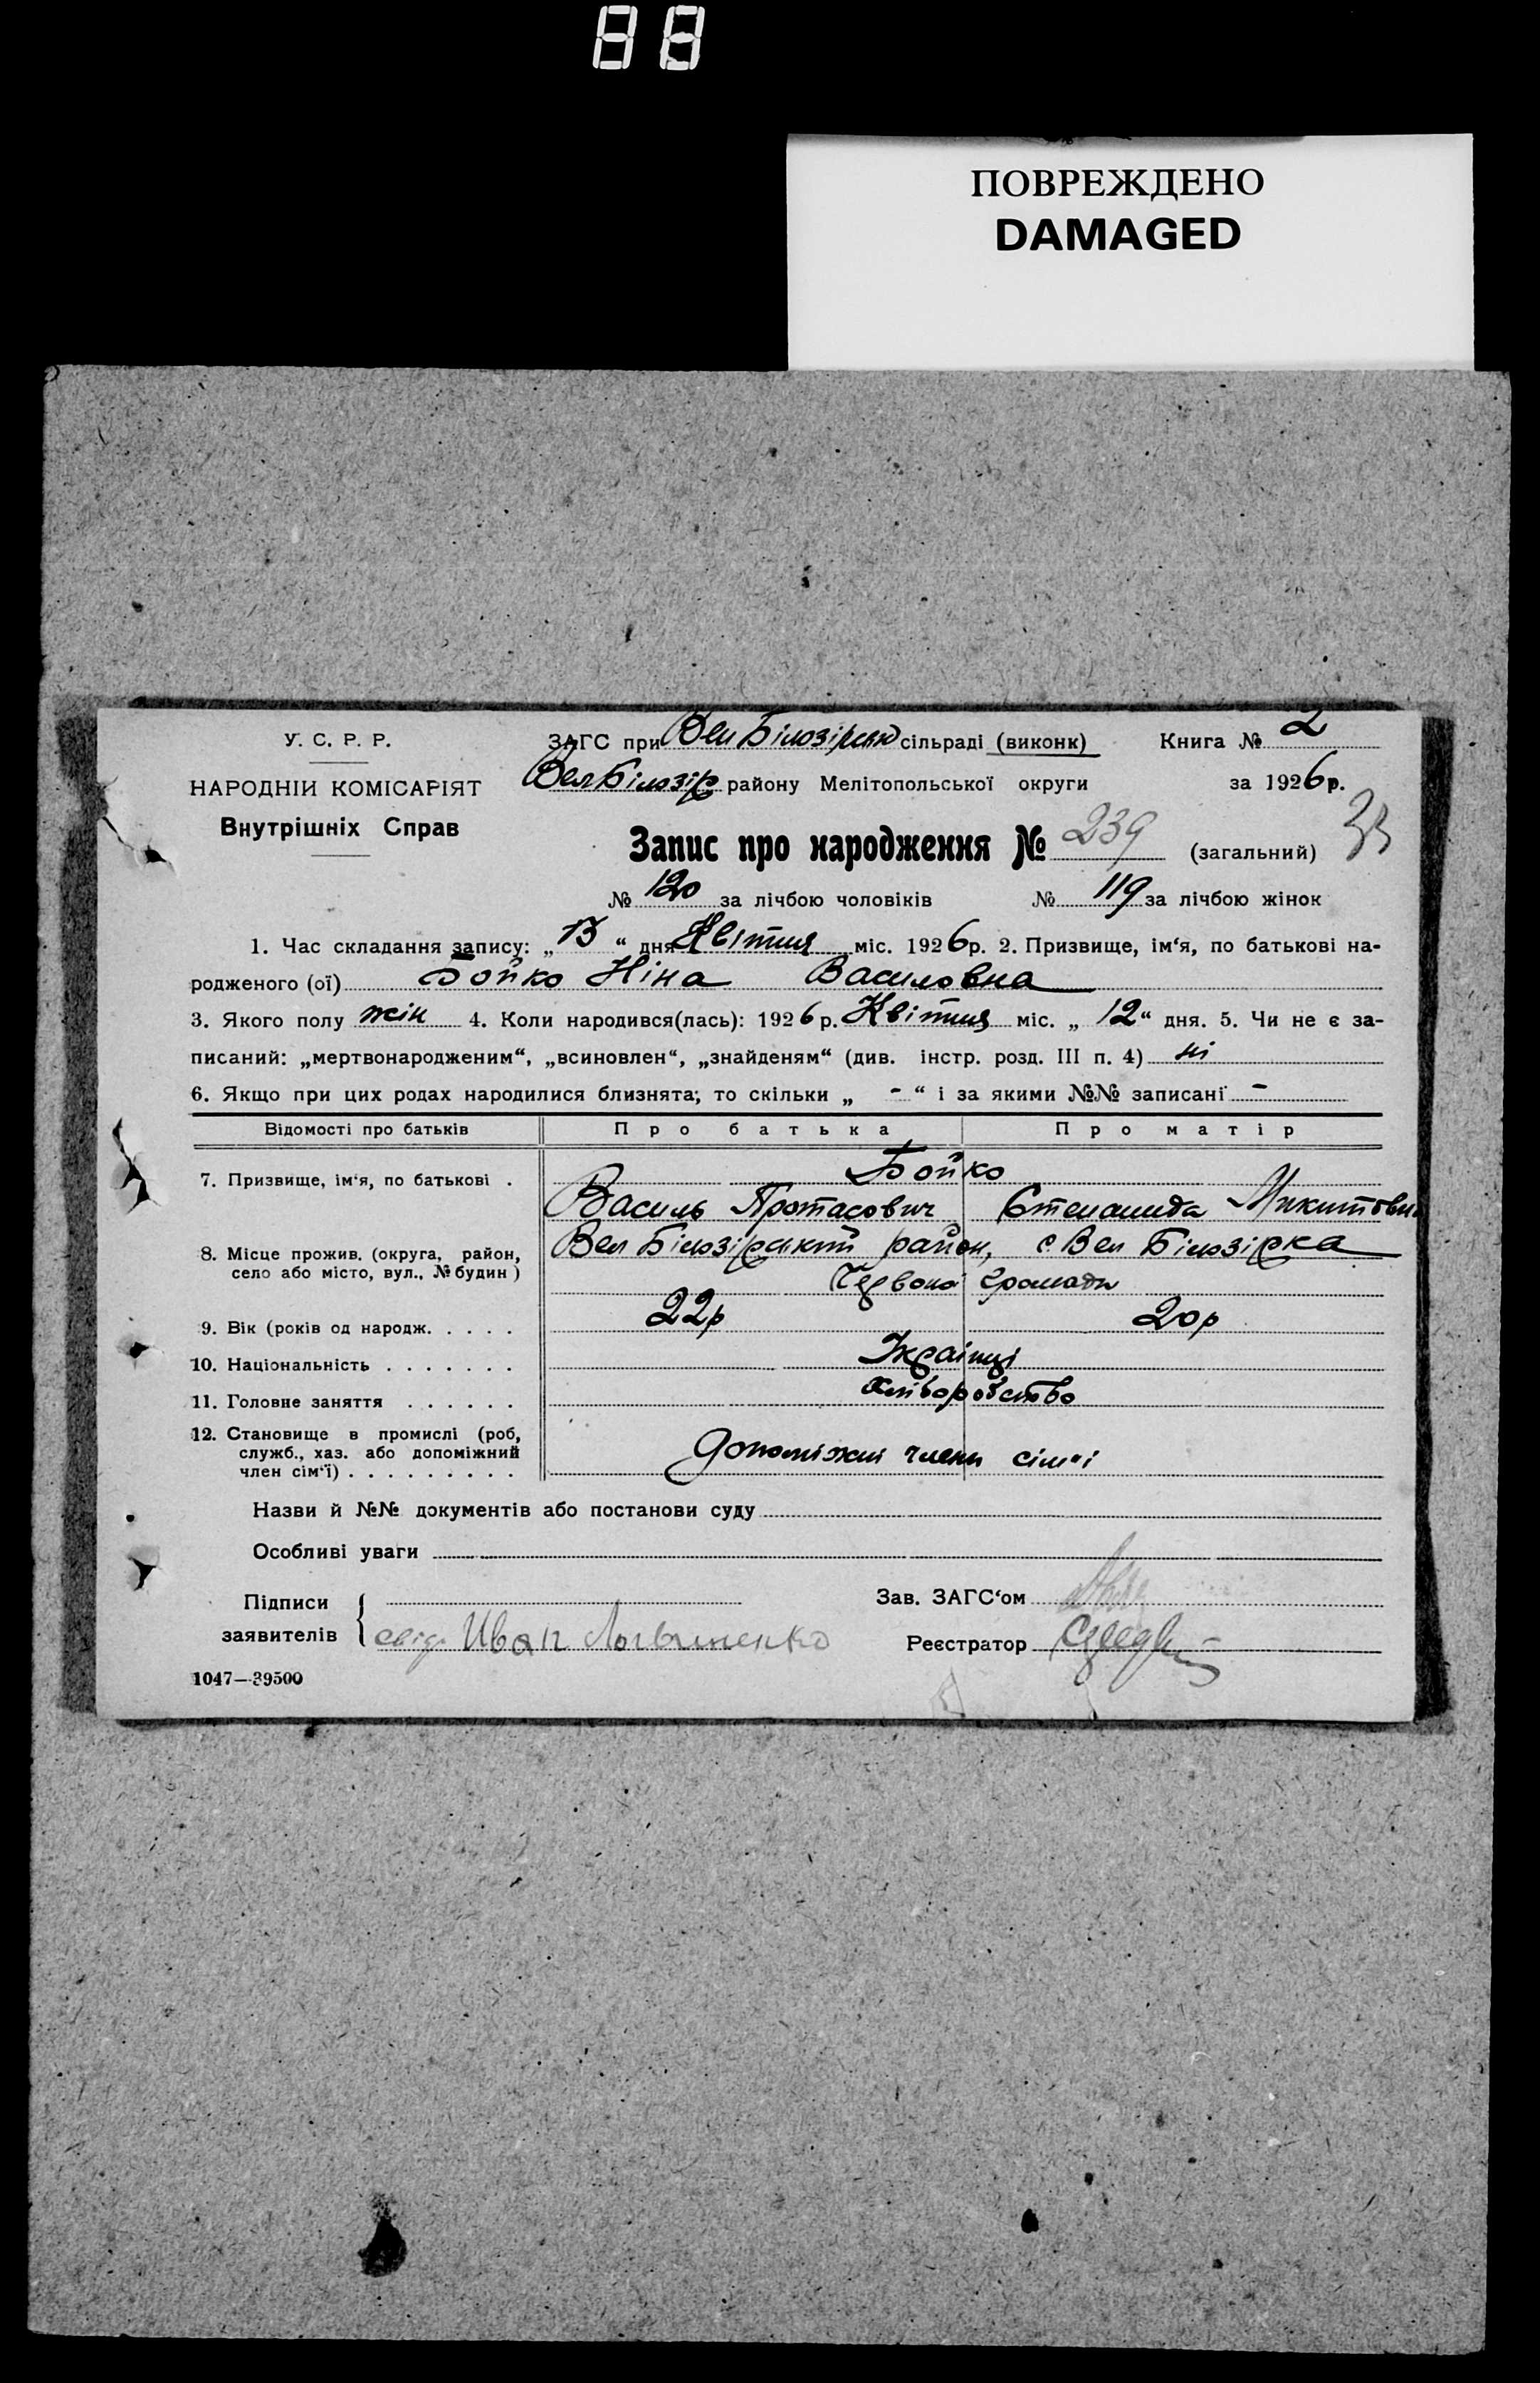 88
ПОВРЕЖДЕНО
DAMAGED
У. С. Р. Р.
НАРОДНІЙ КОМІСАРІЯТ
Внутрішніх Справ
ЗАГС при Вел Білозірськ сільраді (виконк) Книга № 2
Вел Білозір району Мелітопольської округи за 1926 р.
Запис про народження № 239 (загальний) 33
№ 120 за лічбою чоловіків № 119 за лічбою жінок
1. Час складання запису: „ 13 “ дня Квітня міс. 1926 р. 2. Призвище, ім‘я, по батькові на-
родженого (ої) Бойко Ніна Василовна
3. Якого полу жін 4. Коли народився(лась): 1926 р. Квітня міс. „ 12 “ дня. 5. Чи не є за-
писаний: „мертвонародженим“, „всиновлен“, „знайденям“ (див. інстр. розд. III п. 4) ні
6. Якщо при цих родах народилися близнята; то скільки „ - “ і за якими №№ записані -
Відомості про батьків Про батька Про матір
7. Призвище, ім‘я, по батькові . Бойко
Василь Протасович Степанида Микитовн
8. Місце прожив. (округа, район, село або місто, вул., № будин) Вел Білозірський район, с. Вел Білозірка
Червоної громади
9. Вік (років од народж. . . . . 22р 20р
10. Національність . . . . . . . Українці
11. Головне заняття . . . . . . Хліборобство
12. Становище в промислі (роб, служб., хаз. або допоміжний член сім‘ї) . . . . . . . . . Допоміжні члени сім'ї
Назви й №№ документів або постанови суду
Особливі уваги
Підписи заявителів свід. Иван Логвиненко
Зав. ЗАГС‘ом
Реєстратор
1047—39500